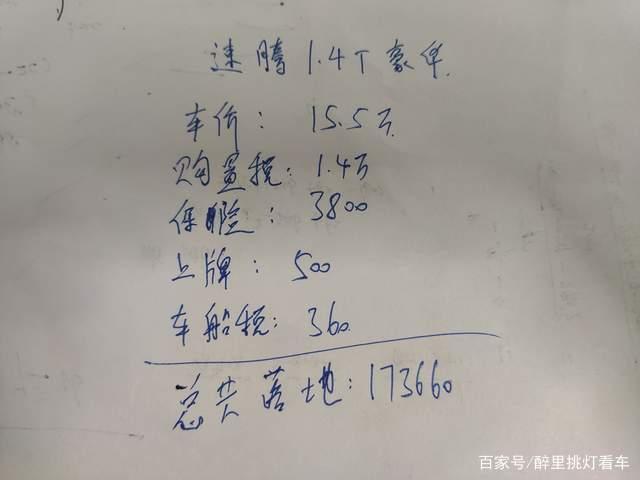 速腾 1.4T 豪华
车价: 15.5万
购置税: 1.4万
保险: 3800
上牌: 500
车船税: 360
总共落地: 173660
百家号/醉里挑灯看车